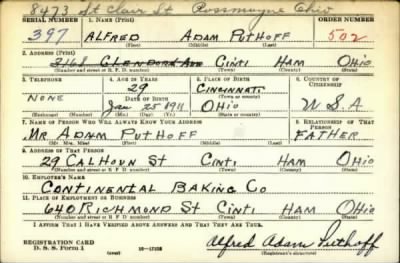 8473 St Clair St Rossmoyne Ohio
SERIAL NUMBER 1. NAME (Print) ORDER NUMBER
397 ALFRED ADAM PUTHOFF 502
(First) (Middle) (Last)
2. ADDRESS (Print)
3168 GLENDORA AVE CINTI HAM OHIO
(Number and street or R. F. D. number) (Town) (County) (State)
3. TELEPHONE 4. AGE IN YEARS 5. PLACE OF BIRTH 6. COUNTRY OF CITIZENSHIP
29 CINCINNATI
NONE DATE OF BIRTH (Town or county)
Jan 25 1911 OHIO U S A
(Exchange) (Number) (Mo.) (Day) (Yr.) (State or country)
7. NAME OF PERSON WHO WILL ALWAYS KNOW YOUR ADDRESS 8. RELATIONSHIP OF THAT PERSON
MR ADAM PUTHOFF FATHER
(Mr., Mrs., Miss) (First) (Middle) (Last)
9. ADDRESS OF THAT PERSON
29 CALHOUN ST CINTI HAM OHIO
(Number and street or R. F. D. number) (Town) (County) (State)
10. EMPLOYER'S NAME
CONTINENTAL BAKING CO
11. PLACE OF EMPLOYMENT OR BUSINESS
640 RICHMOND ST CINTI HAM OHIO
(Number and street or R. F. D. number) (Town) (County) (State)
I AFFIRM THAT I HAVE VERIFIED ABOVE ANSWERS AND THAT THEY ARE TRUE.
REGISTRATION CARD
D. S. S. Form 1 (over) 16-17105 Alfred Adam Puthoff
(Registrant's signature)